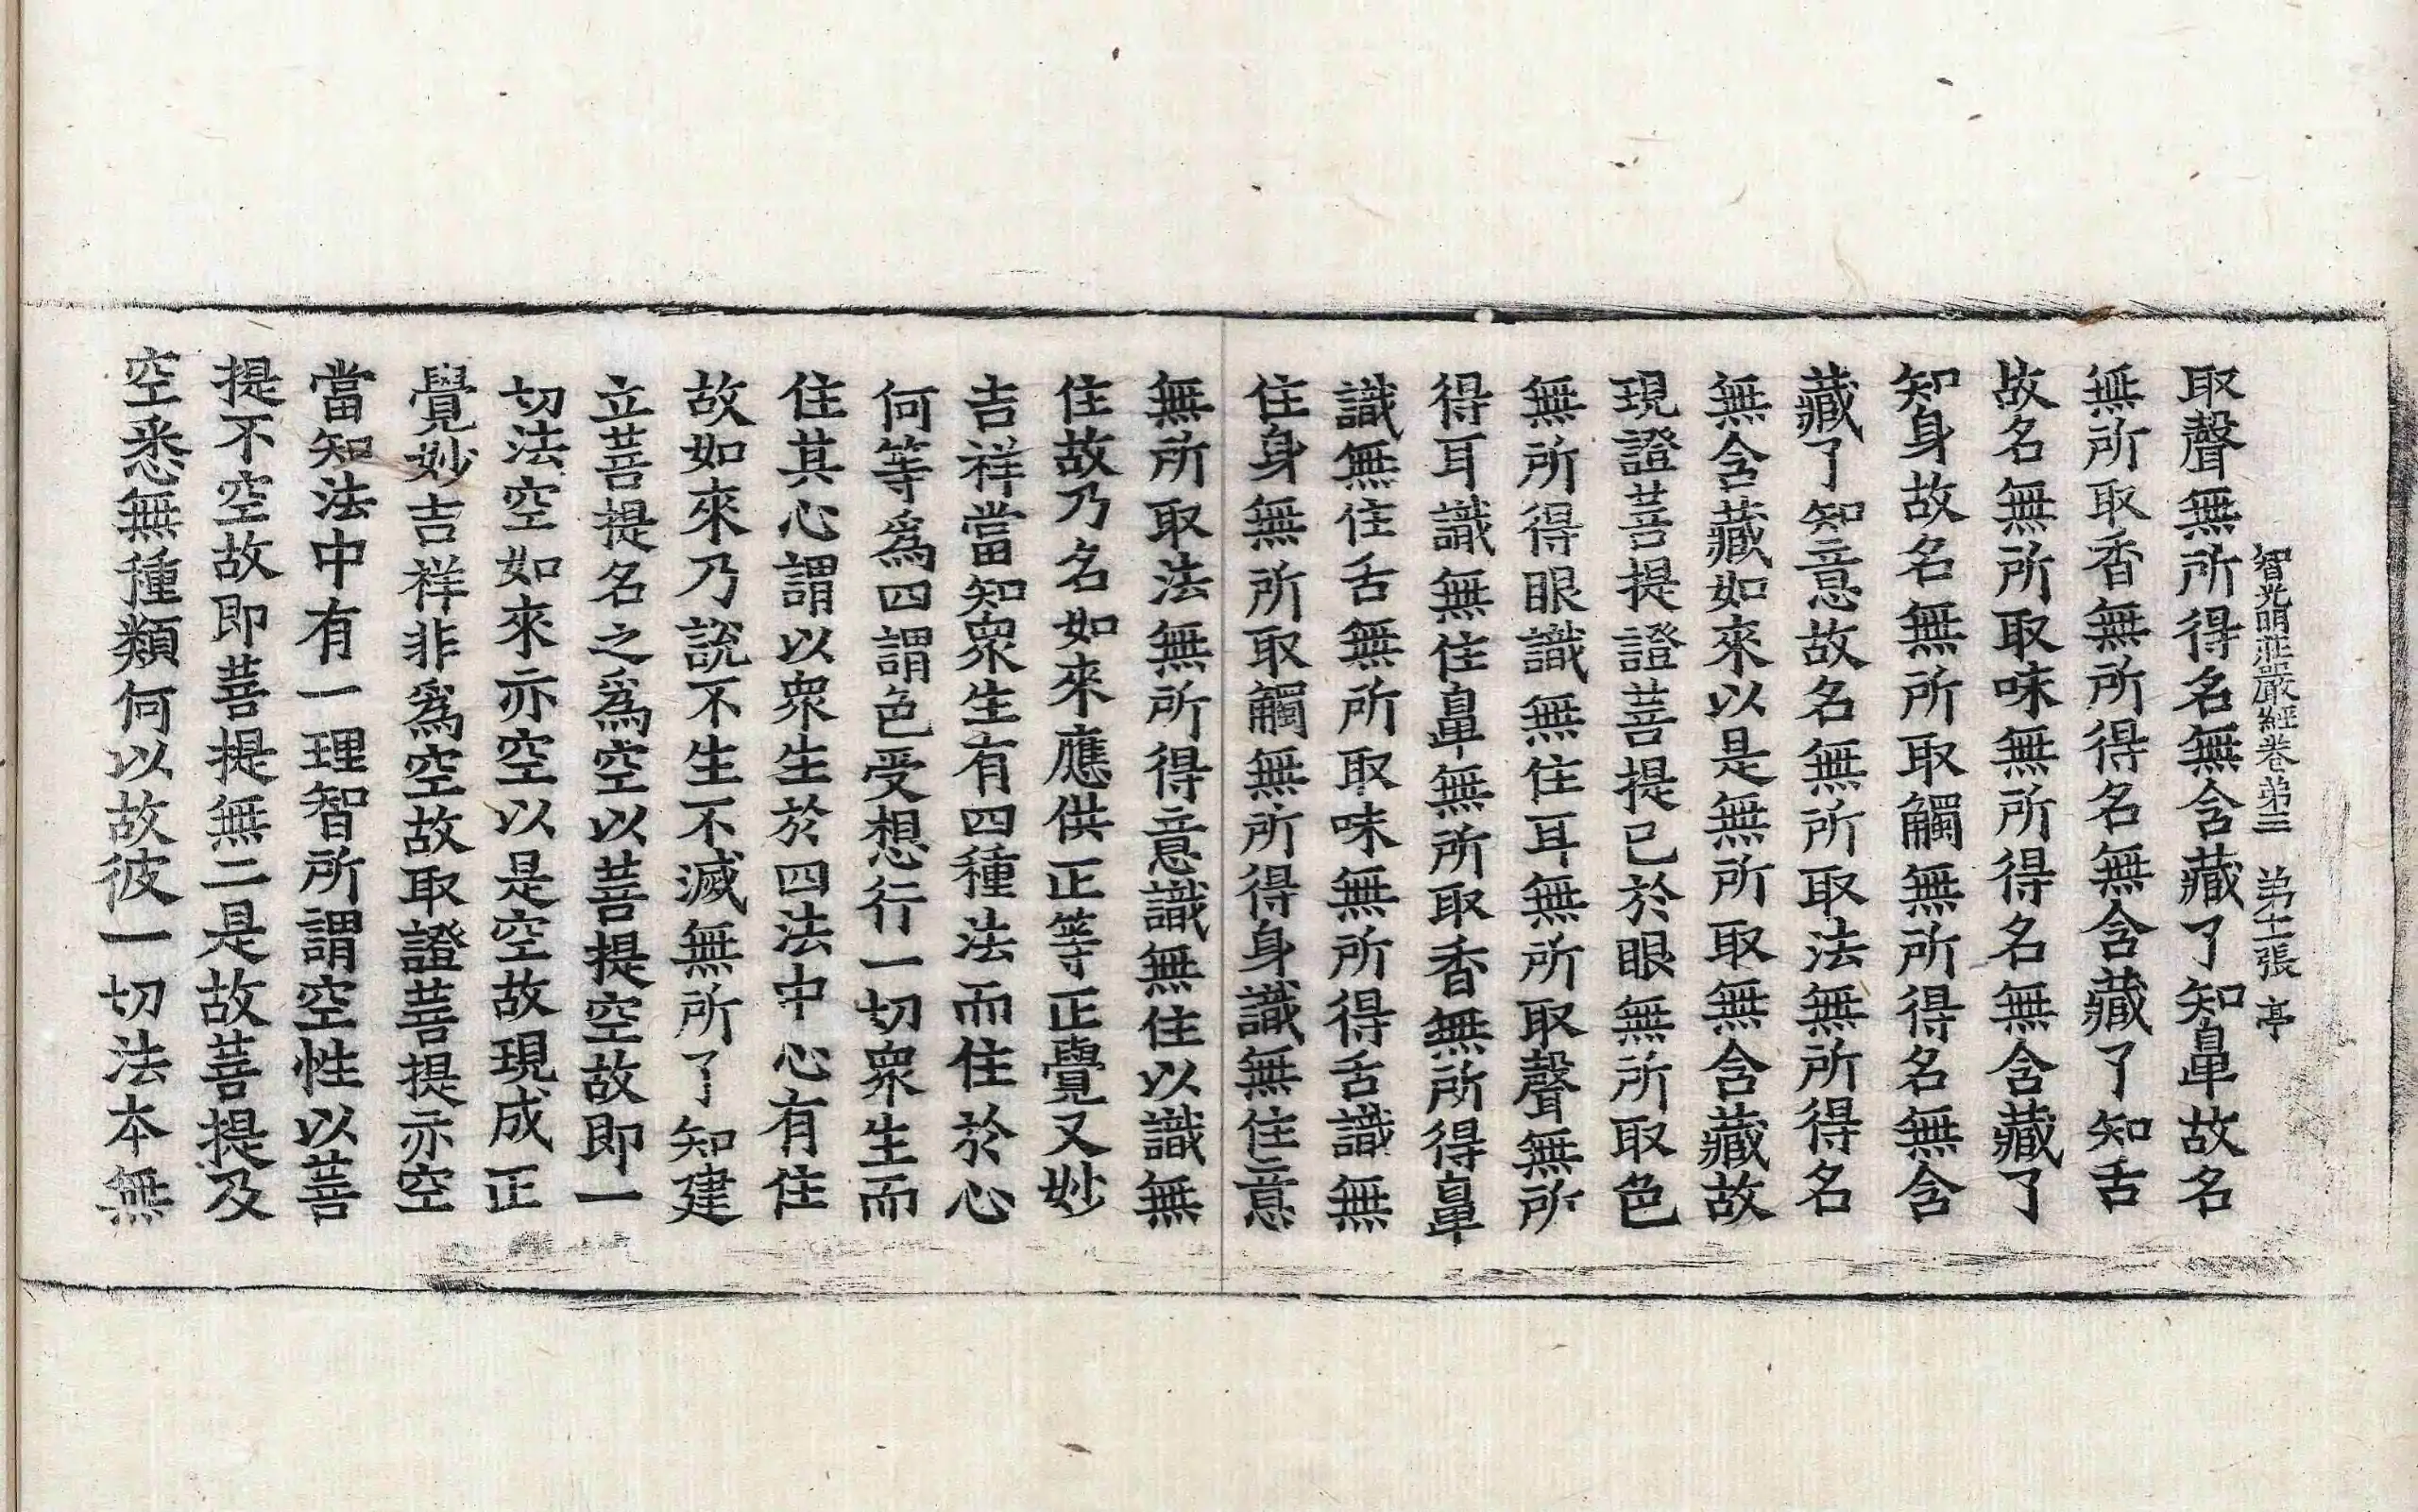 智光明莊嚴經卷第三　第十二張　亭
取聲無所得名無含藏了知鼻故名
無所取香無所得名無含藏了知舌
故名無所取味無所得名無含藏了
知身故名無所取觸無所得名無含
藏了知意故名無所取法無所得名
無含藏如來以是無所取無含藏故
現證菩提證菩提已於眼無所取色
無所得眼識無住耳無所取聲無所
得耳識無住鼻無所取香無所得鼻
識無住舌無所取味無所得舌識無
住身無所取觸無所得身識無住意
無所取法無所得意識無住以識無
住故乃名如來應供正等正覺又妙
吉祥當知衆生有四種法而住於心
何等爲四謂色受想行一切衆生而
住其心謂以衆生於四法中心有住
故如來乃說不生不滅無所了知建
立菩提名之爲空以菩提空故即一
切法空如來亦空以是空故現成正
覺妙吉祥非爲空故取證菩提亦空
當知法中有一理智所謂空性以菩
提不空故即菩提無二是故菩提及
空悉無種類何以故彼一切法本無